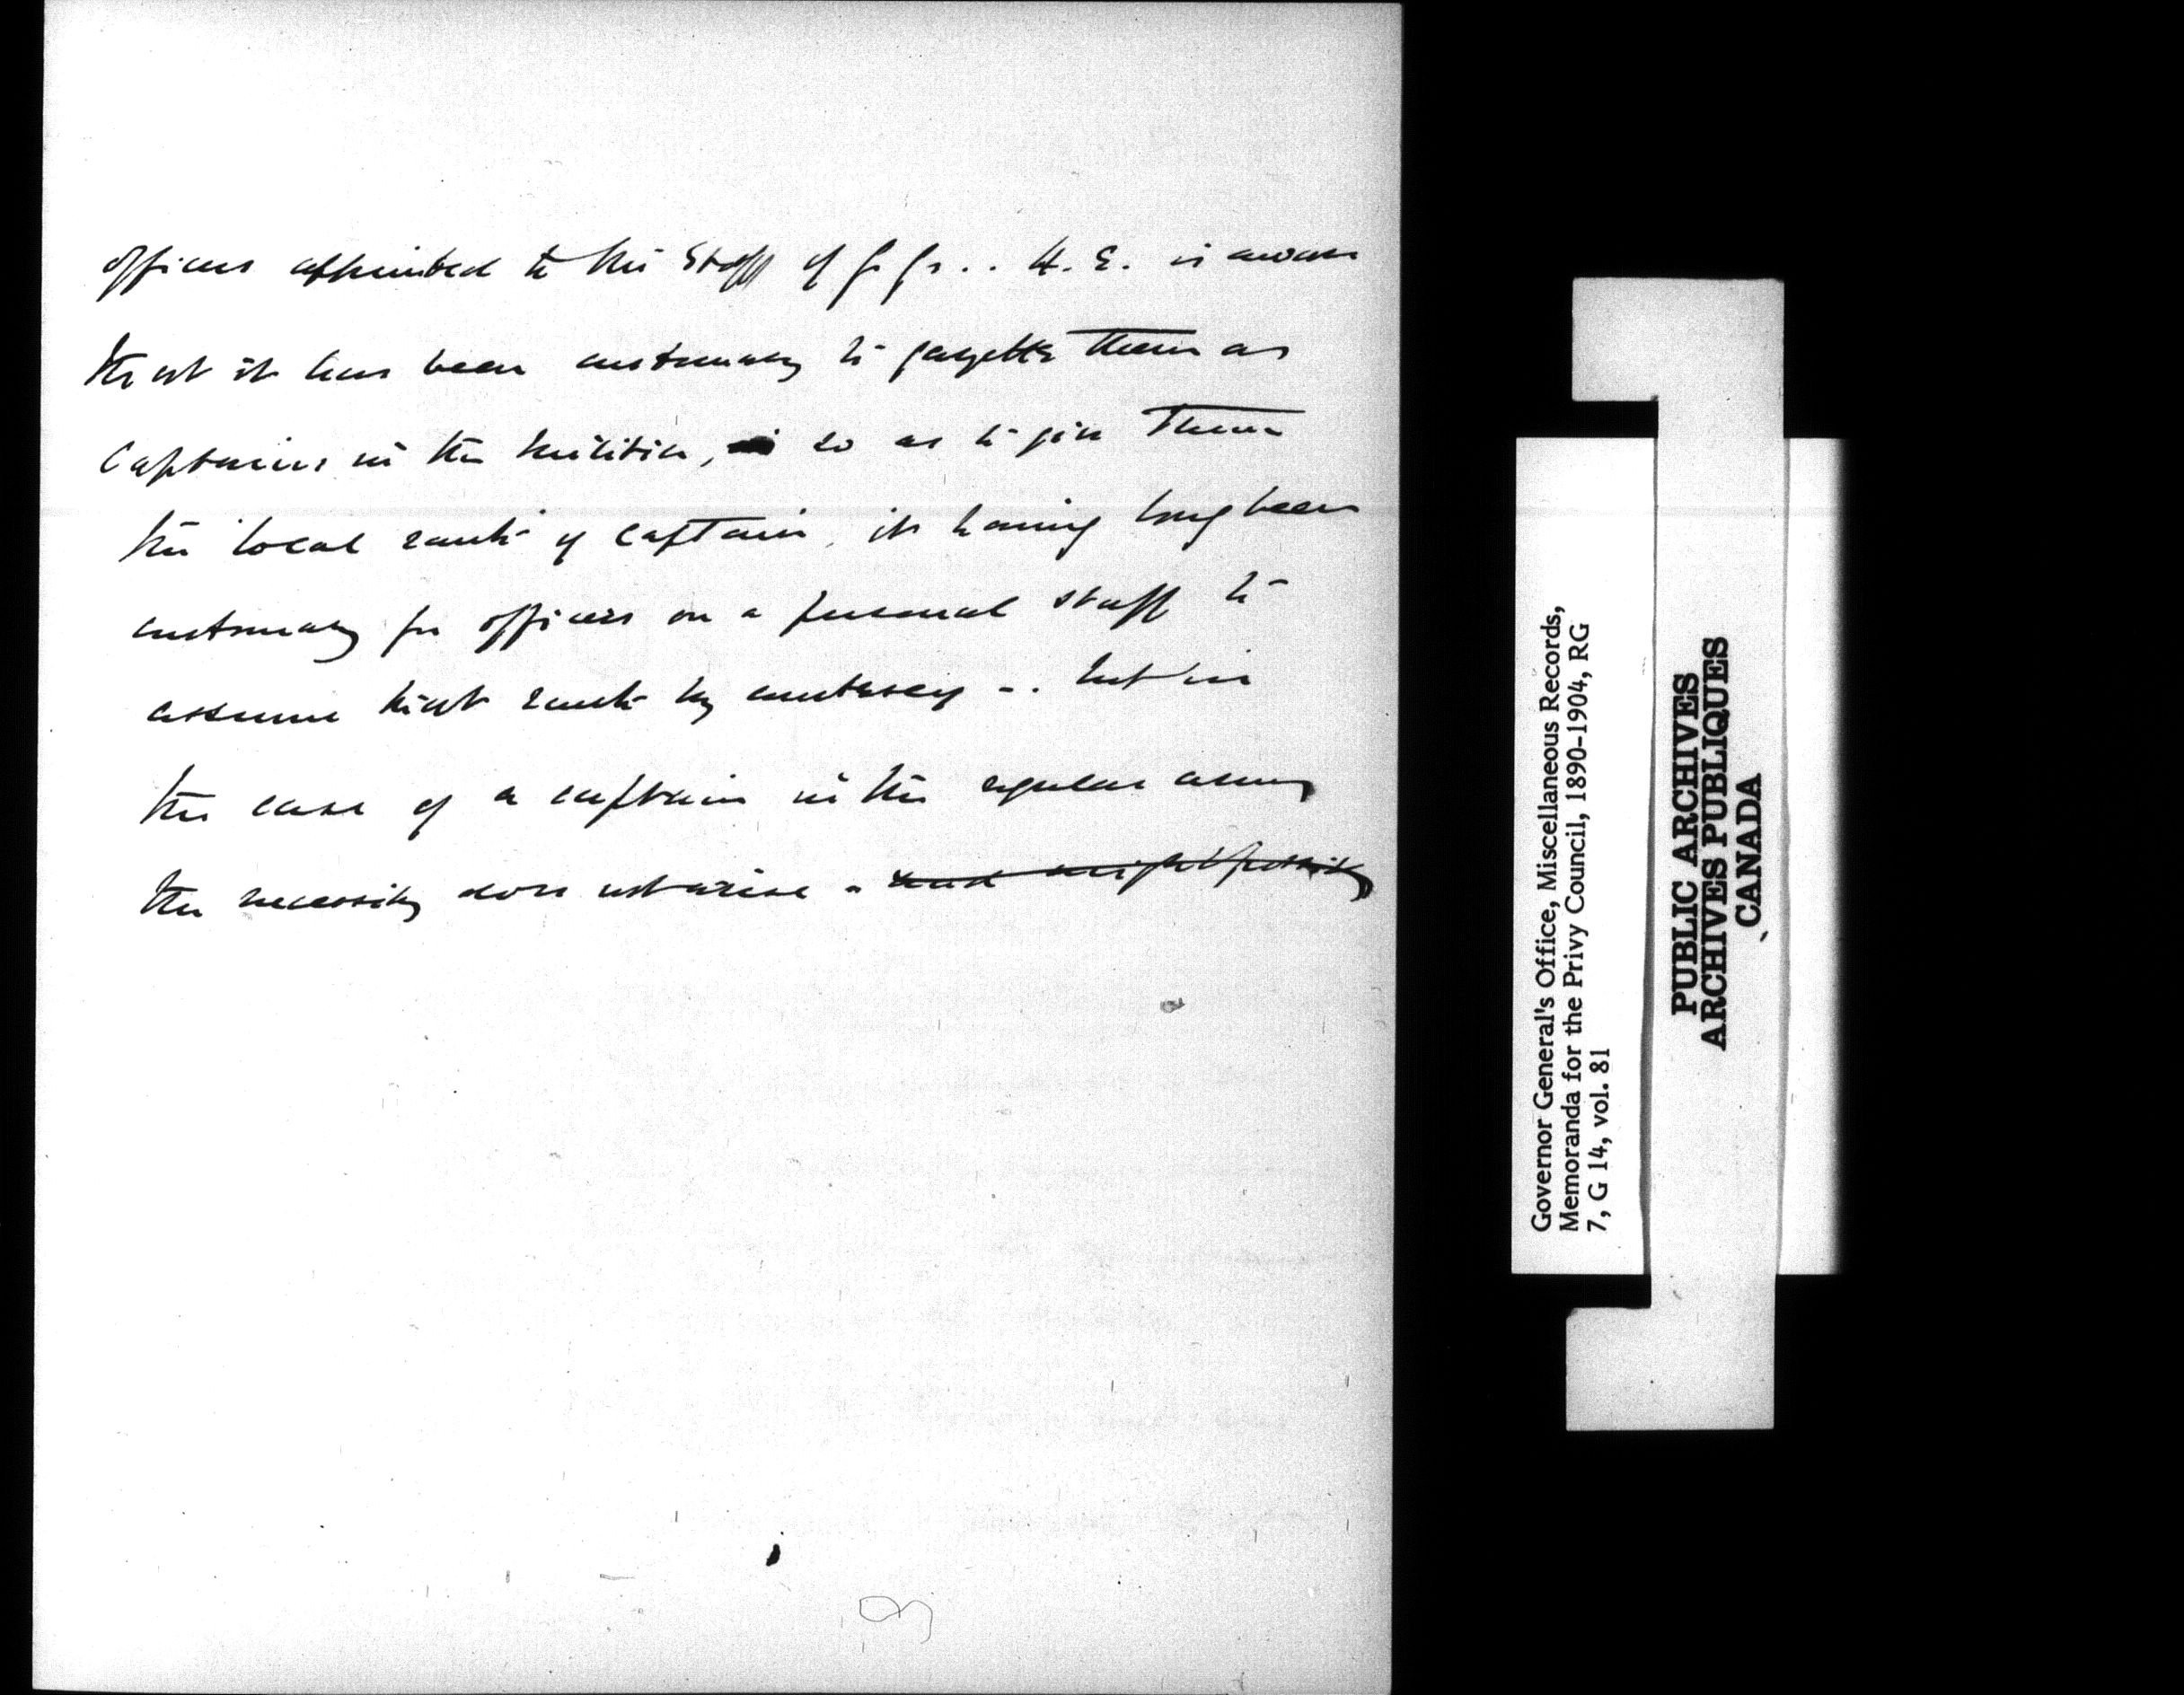 officers appointed to the Staff of G.G.. H.E. is aware
that it has been customary to gazette them as
Captains in the Militia, so as to give them
the local rank of Captain, it having long been
customary for officers on a personal staff to
assume that rank by courtesy -. but in
the case of a captain in the regular army
the necessity does not arise - and might possibly
Governor General's Office, Miscellaneous Records,
Memoranda for the Privy Council, 1890-1904, RG
7, G 14, vol. 81
PUBLIC ARCHIVES
ARCHIVES PUBLIQUES
CANADA